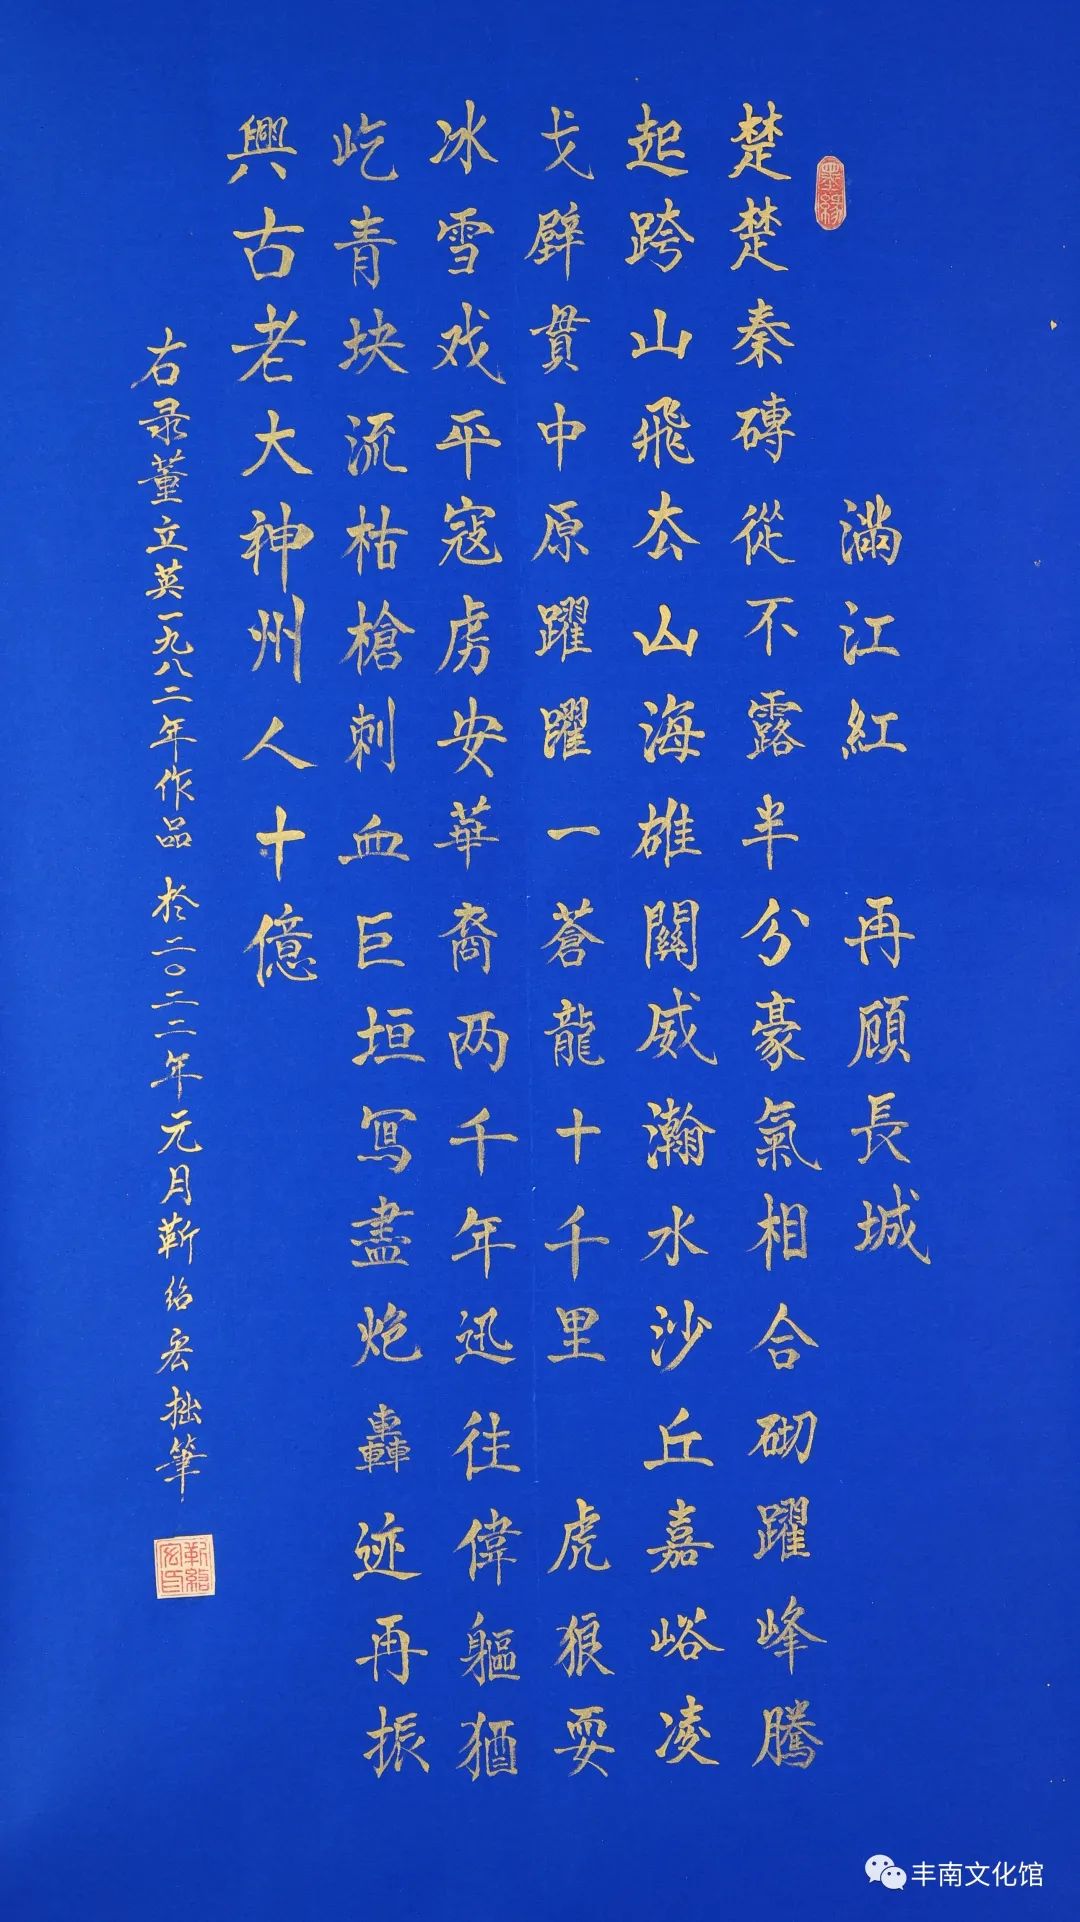 滿江紅 再顾長城
楚楚秦磚從不露半分豪氣相合砌躍峰騰
起跨山飛厺山海雄關威瀚水沙丘嘉峪凌
戈壁貫中原躍躍一蒼龍十千里 虎狼耍
冰雪戏平寇虏安華裔两千年迅往偉軀猶
屹青块流枯槍刺血巨垣冩盡炮轟迹再振
興古老大神州人十億
右录董立英一九八二年作品 於二〇二二年元月靳绍宏拙筆
墨緣
丰南文化馆